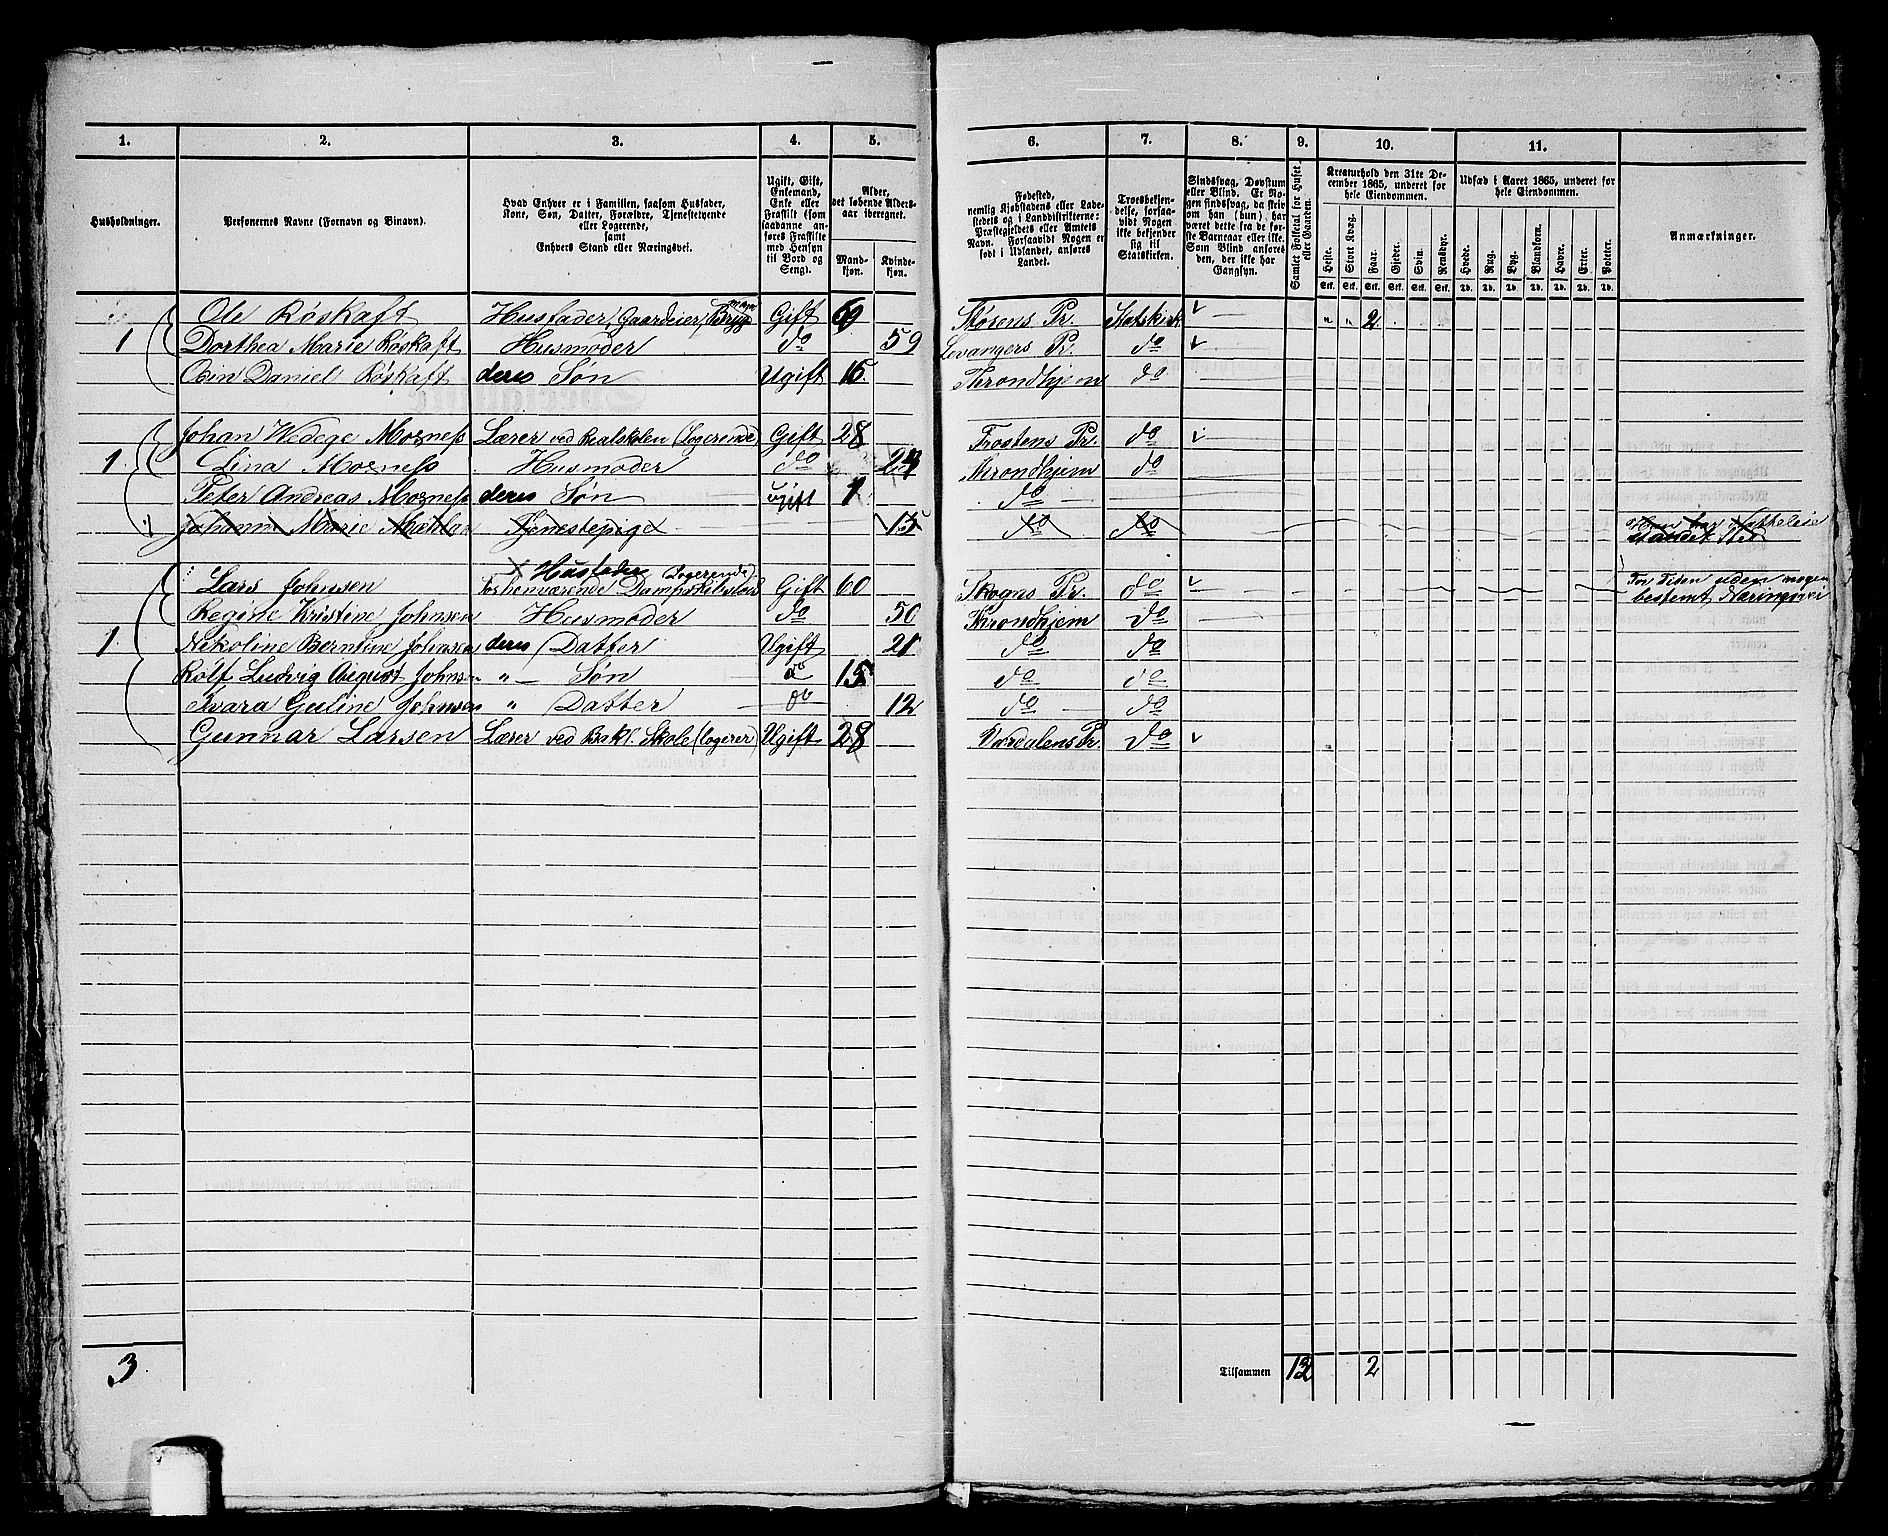 1. 2. 3. 4. 5. 6. 7. 8. 9. 10. 11.
Husholdninger.
Personernes Navne (Fornavn og Binavn).
Hvad Enhver er i Familien, saasom Husfader,
Kone, Søn, Datter, Forældre, Tjenestetyende
eller Logerende,
samt
Enhvers Stand eller Næringsvei.
Ugift, Gift,
Enkemand,
Enke eller
Fraskilt (som
saadanne an-
føres Fraskilte
med Hensyn
til Bord og
Seng).
Alder,
det løbende Alders-
aar iberegnet.
Mand-
kjøn.
Kvinde-
kjøn.
Fødested,
nemlig Kjøbstadens eller Lade-
stedets og i Landdistrikterne:
Præstegjeldets eller Amtets
Navn. Forsaavidt Nogen er
født i Udlandet, anføres
Landet.
Troesbekjen-
delse, forsaa-
vidt Nogen
ikke bekjender
sig til
Statskirken.
Sindssvag, Døvstum
eller Blind. Er No-
gen sindssvag, da skriv
om han (hun) har
været dette fra de før-
ste Barneaar eller ikke.
Som Blind anføres
den, der ikke har
Gangsyn.
Samlet Folketal for Huset
eller Gaarden.
Kreaturhold den 31te De-
cember 1865, underet for
hele Eiendommen.
Heste. Stort Kvæg. Faar. Gjeder. Svin. Rensdyr.
Stk. Stk. Stk. Stk. Stk. Stk.
Udsæd i Aaret 1865, underet for
hele Eiendommen.
Hvede. Rug. Byg. Blandkorn. Havre. Erter. Poteter.
Td. Td. Td. Td. Td. Td. Td.
Anmærkninger.
Ole Røskaft Husfader, Gaardeier, Gift 69 Størens Pr. Statskirk " " 2
1 Dorthea Marie Røskaft Husmoder do 59 Levangers Pr. do
Daniel Røskaft deres Søn Ugift 15. Throndhjem do
Johan Wedege Mosness Lærer ved Realskolen (Logerende) Gift 28 Frostens Pr. do
1. Lina Mosness Husmoder do Throndhjem do
Peter Andreas Mosness deres Søn Ugift 1 do
Johanna Marie Tjenestepige 15 do do
Husfader Logerende) For Tiden uden nogen
Lars Johnsen Gift 60 Skogns Pr. do bestemt Næringsvei
Regine Kristine Johnsen Husmoder do 50 Throndhjem do
1. Nikoline Berntine Johnsen deres Datter Ugift 21 do do
Rolf Ludvig August Johnsen " Søn do 15 do do
Guline Johnsen " Datter do 12 do do
Gunnar Larsen Lærer ved Bakl. Skole (Logerer) Ugift 28 Værdalens Pr. do
3 Tilsammen 12 2